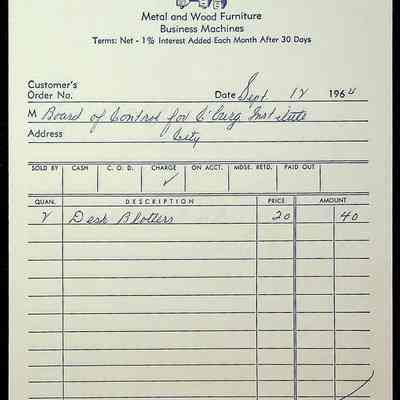 Metal and Wood Furniture
Business Machines
Terms: Net - 1% Interest Added Each Month After 30 Days
Customer's
Order No. Date Sept 12 1964
M Board of Control for C'burg Institute
Address City
SOLD BY CASH C. O. D. CHARGE ON ACCT. MDSE. RETD. PAID OUT
✓
QUAN. DESCRIPTION PRICE AMOUNT
2 Desk Blotters 20 40